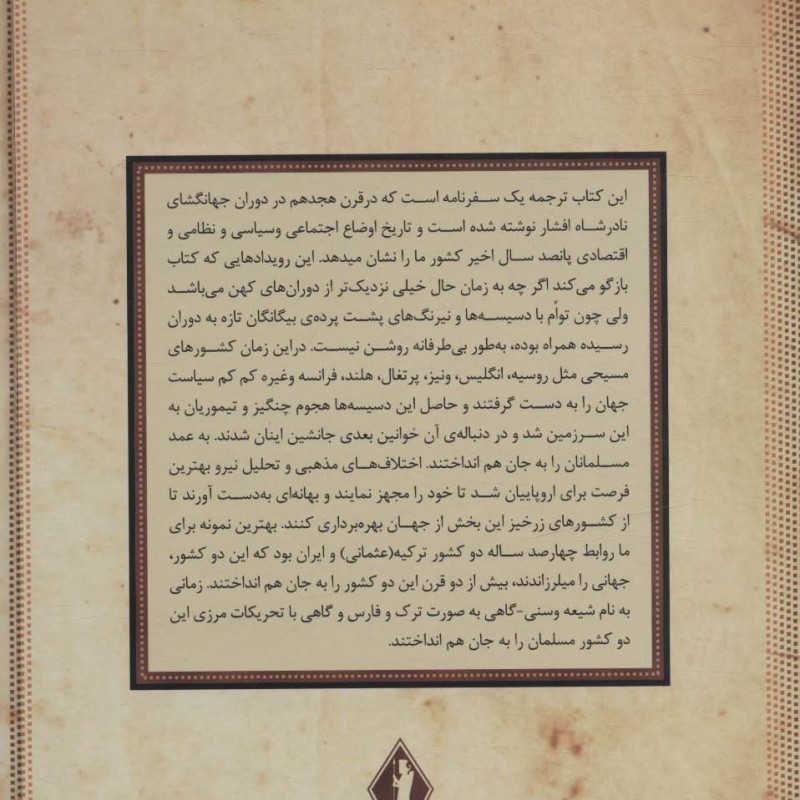 این کتاب ترجمه یک سفرنامه است که درقرن هجدهم در دوران جهانگشای
نادرشاه افشار نوشته شده است و تاریخ اوضاع اجتماعی وسیاسی و نظامی و
اقتصادی پانصد سال اخیر کشور ما را نشان میدهد. این رویدادهایی که کتاب
بازگو می‌کند اگر چه به زمان حال خیلی نزدیک‌تر از دوران‌های کهن می‌باشد
ولی چون توأم با دسیسه‌ها و نیرنگ‌های پشت پرده‌ی بیگانگان تازه به دوران
رسیده همراه بوده، به‌طور بی‌طرفانه روشن نیست. دراین زمان کشورهای
مسیحی مثل روسیه، انگلیس، ونیز، پرتغال، هلند، فرانسه وغیره کم کم سیاست
جهان را به دست گرفتند و حاصل این دسیسه‌ها هجوم چنگیز و تیموریان به
این سرزمین شد و در دنباله‌ی آن خوانین بعدی جانشین اینان شدند. به عمد
مسلمانان را به جان هم انداختند. اختلاف‌های مذهبی و تحلیل نیرو بهترین
فرصت برای اروپاییان شد تا خود را مجهز نمایند و بهانه‌ای به‌دست آورند تا
از کشورهای زرخیز این بخش از جهان بهره‌برداری کنند. بهترین نمونه برای
ما روابط چهارصد ساله دو کشور ترکیه(عثمانی) و ایران بود که این دو کشور،
جهانی را میلرزاندند، بیش از دو قرن این دو کشور را به جان هم انداختند. زمانی
به نام شیعه وسنی-گاهی به صورت ترک و فارس و گاهی با تحریکات مرزی این
دو کشور مسلمان را به جان هم انداختند.